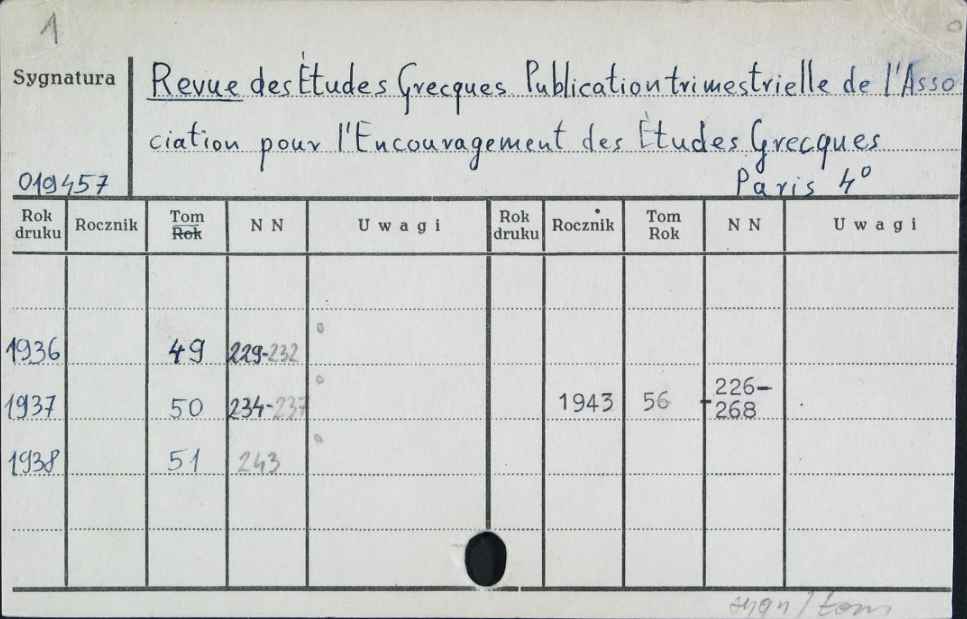 1
Sygnatura
Revue des Études Grecques Publication trimestrielle de l'Asso
ciation pour l'Encouragement des Études Grecques
019457
Paris 4°
Rok druku Rocznik Tom Rok N N Uwagi Rok druku Rocznik Tom Rok N N Uwagi
1936 49 229-232
1937 50 234-237 1943 56 226-268
1938 51 243
sygn / tom